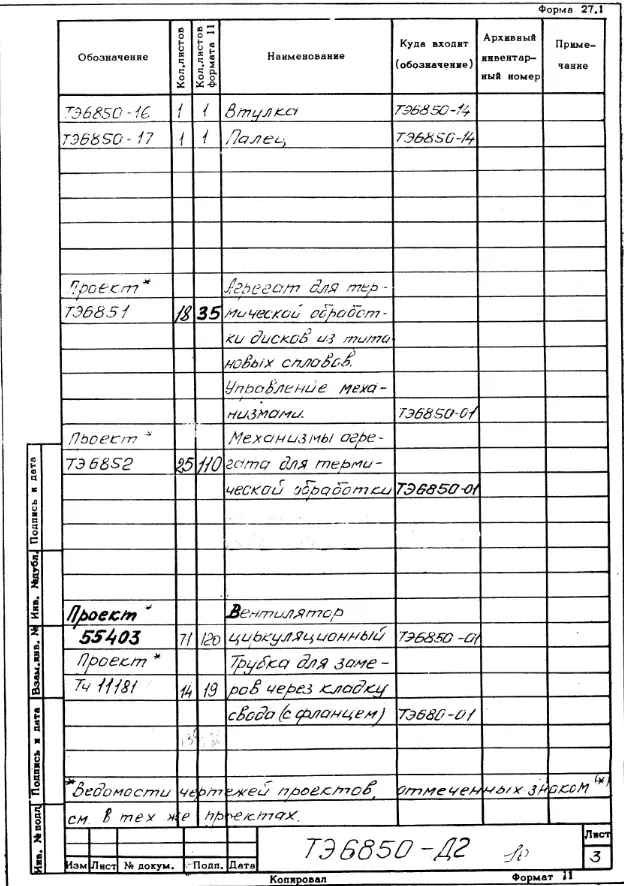 Форма 27.1
Обозначение Кол.листов Кол.листов формата 11 Наименование Куда входит (обозначение) Архивный инвентар- ный номер Приме- чание
ТЭ6850-16 1 1 Втулка ТЭ6850-14
ТЭ6850-17 1 1 Палец ТЭ6850-14
Проект* Агрегат для тер-
ТЭ6851 18 35 мической обработ-
ки дисков из тита
новых сплавов.
Управление меха-
низмами. ТЭ6850-01
Проект* Механизмы агре-
ТЭ6852 25 110 гата для терми-
ческой обработки ТЭ6850-01
Проект* Вентилятор
55403 71 120 циркуляционный ТЭ6850-01
Проект* Трубка для заме-
Тч 11181 14 19 ров через кладку
свода (с фланцем) ТЭ680-01
*Ведомости чертежей проектов, отмеченных знаком (*)
см. в тех же проектах.
Инв. № подл. Подпись и дата Взам.инв. № Инв. № дубл. Подпись и дата
ТЭ6850-Д2
Лист
3
Изм Лист № докум. Подп. Дата
Копировал Формат 11